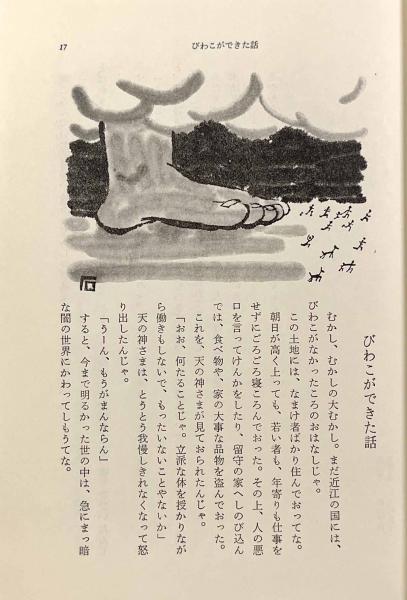 17
びわこができた話
びわこができた話
むかし、むかしの大むかし。まだ近江の国には、
びわこがなかったころのおはなしじゃ。
この土地には、なまけ者ばかり住んでおってな。
朝日が高く上っても、若い者も、年寄りも仕事を
せずにごろごろ寝ころんでおった。その上、人の悪
口を言ってけんかをしたり、留守の家へしのび込ん
では、食べ物や、家の大事な品物を盗んでおった。
これを、天の神さまが見ておられたんじゃ。
「おお、何たることじゃ。立派な体を授かりなが
ら働きもしないで、もったいないことやないか」
天の神さまは、とうとう我慢しきれなくなって怒
り出したんじゃ。
「うーん、もうがまんならん」
すると、今まで明るかった世の中は、急にまっ暗
な闇の世界にかわってしもうてな。